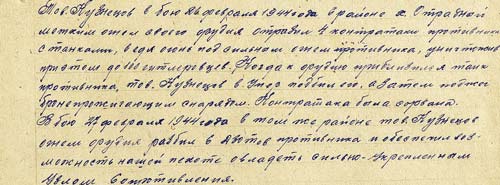 Тов. Кузнецов в бою 26 февраля 1944 года в районе х. Отрадной
метким огнем своего орудия отразил 4 контратаки противника
с танками, ведя огонь под сильным огнем противника, уничтожив
при этом до гитлеровцев. Когда к орудию приблизился танк
противника, тов. Кузнецов в упор подбил его, а затем поджег
бронепрожигающим снарядом. Контратака была сорвана.
В бою 27 февраля 1944 года в том же районе тов. Кузнецов
огнем орудия разбил 2 дзотов противника и обеспечил воз-
можность нашей пехоте овладеть сильно-укрепленным
узлом сопротивления.